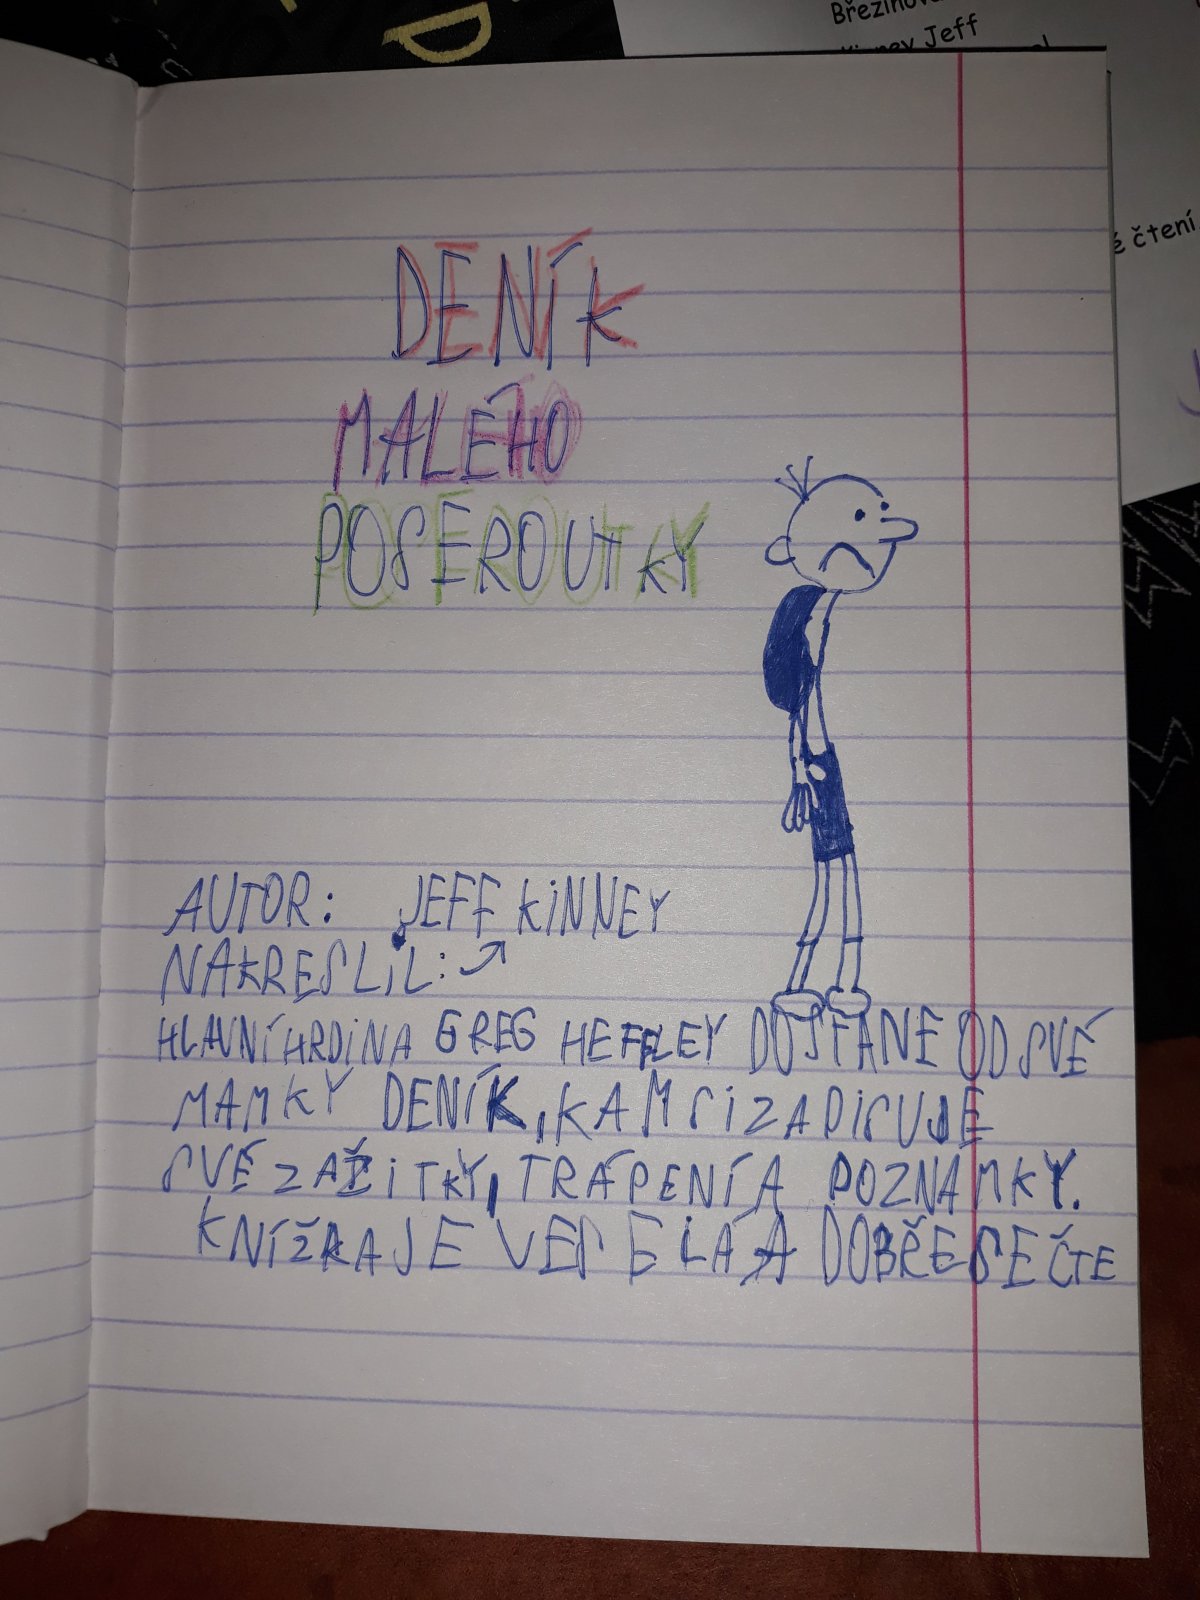 Březinov
Jeff
é čtení
DENÍK
MALÉHO
POSEROUTKY
AUTOR: JEFF KINNEY
NAKRESLIL:
HLAVNÍ HRDINA GREG HEFFLEY DOSTANE OD SVÉ
MAMKY DENÍK, KAM SI ZAPISUJE
SVÉ ZAŽITKY, TRÁPENÍ A POZNÁMKY.
KNÍŽKA JE VESELÁ A DOBŘE SE ČTE